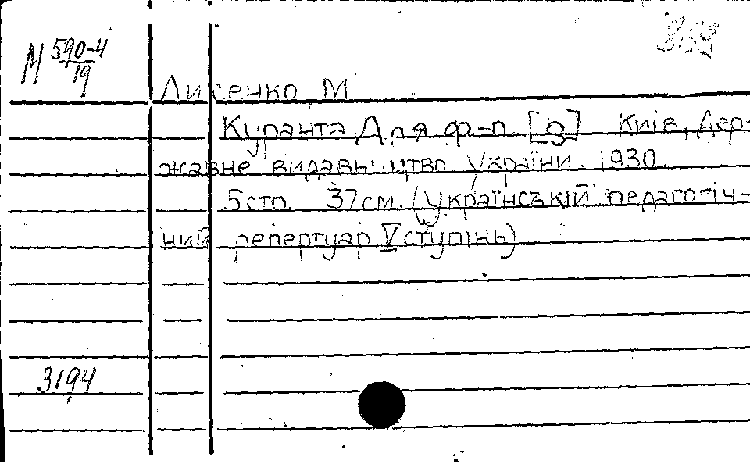 М 590-4
19
Лисенко М
Куранта Для ф-п. [g] Київ, Дер-
жавне видавництво України. 1930.
5стр. 37см. (Український педагогіч-
ний репертуар V ступінь)
3194